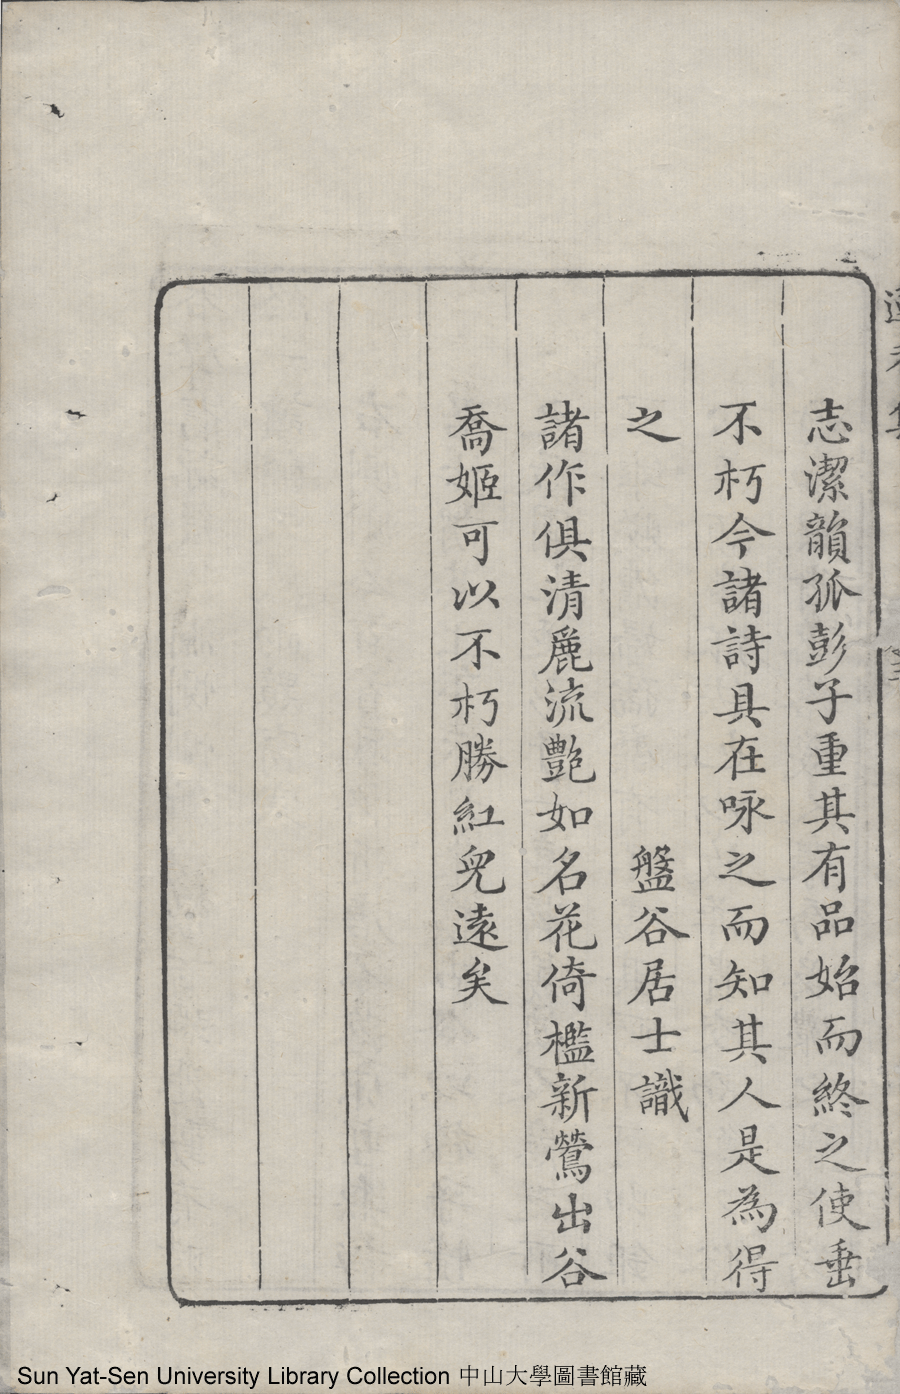 志潔韻孤彭子重其有品始而終之使垂
不朽今諸詩具在咏之而知其人是為得
之
盤谷居士識
諸作俱清麗流艷如名花倚檻新鶯出谷
喬姬可以不朽勝紅兒遠矣
Sun Yat-Sen University Library Collection 中山大學圖書館藏